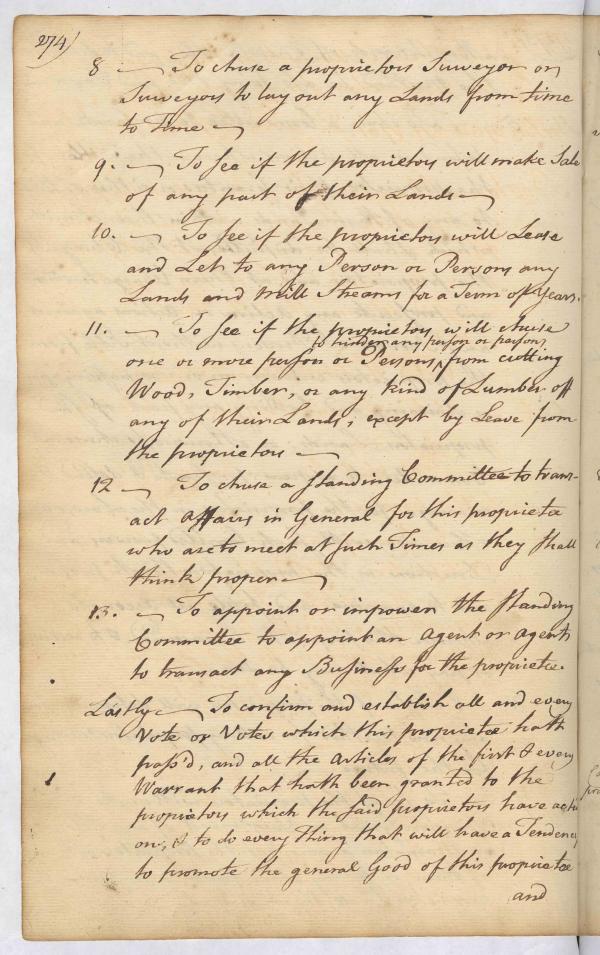 274)
8 — To chuse a proprietors Surveyor or
Surveyors to lay out any Lands from time
to Time —
9. — To see if the proprietors will make Sale
of any part of their Lands —
10. — To see if the proprietors will Lease
and Let to any Person or Persons any
Lands and Mill Streams for a Term of Years.
11. — To see if the proprietors will chuse
to hinder any person or persons
one or more person or Persons ^ from cutting
Wood, Timber, or any kind of Lumber off
any of their Lands, except by Leave from
the proprietors —
12 — To chuse a standing Committee to trans-
act affairs in General for this proprietee
who are to meet at such Times as they shall
think proper —
13. — To appoint or impower the standing
Committee to appoint an agent or agents
to transact any Business for the proprietee.
Lastly — To confirm and establish all and every
Vote or Votes which this proprietee hath
pass'd, and all the articles of the first & every
Warrant that hath been granted to the
proprietors which the said proprietors have acted
on, & to do every Thing that will have a Tendency
to promote the general Good of this proprietee
and